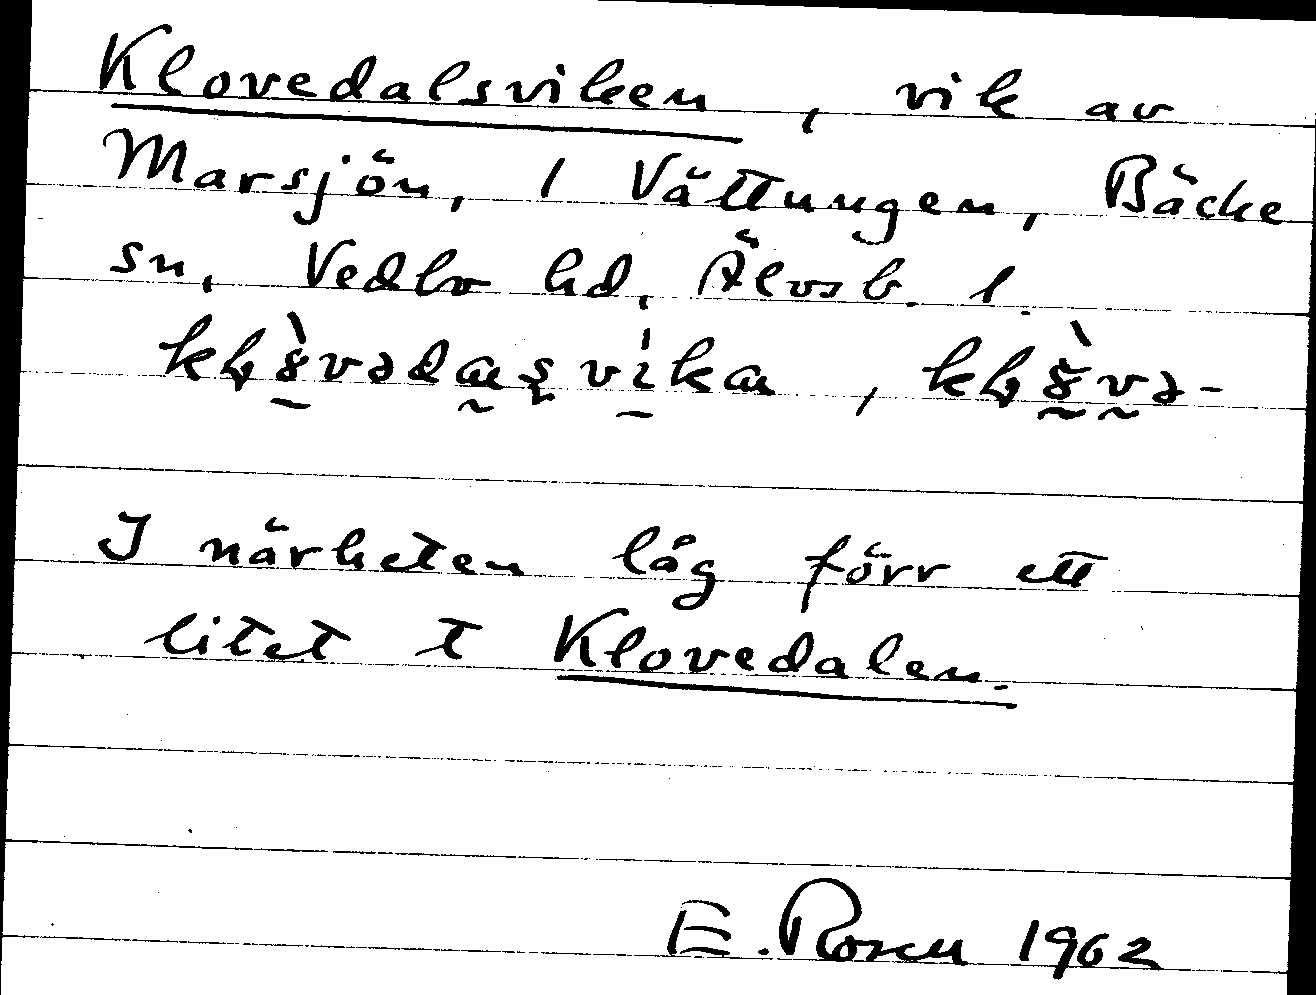 Klovedalsviken, vik av
Marsjön, 1 Vättungen, Bäcke
sn, Vedbo hd, Älvsb. l.
I närheten låg förr ett
litet t Klovedalen.
E. Rosen 1962